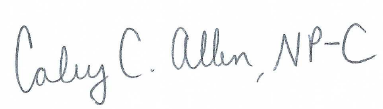 Caley C. Allen, NP-C